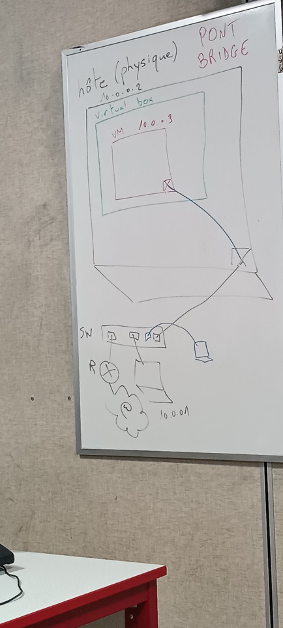 hôte (physique)
PONT
BRIDGE
10.0.0.2
virtual box
VM 10.0.0.3
SW
R
10.0.0.1